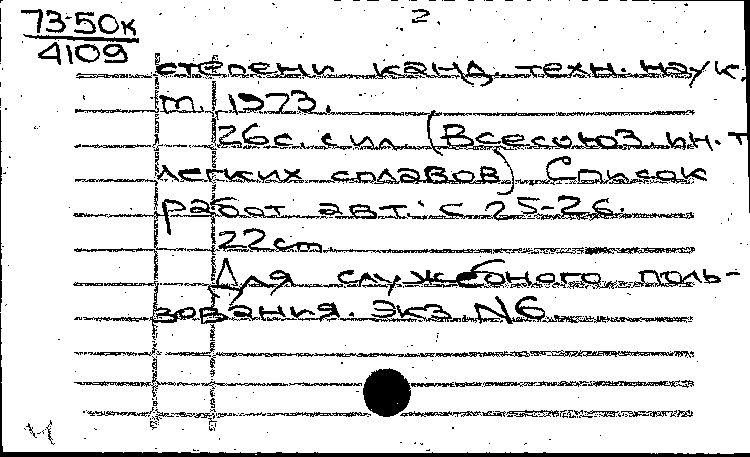 73-50к
4109
2.
степени канд. техн. наук.
m. 1973.
26с. с ил. (Всесоюз. ин. т
легких сплавов) Список
работ авт.: с 25-26.
22cm.
Для служебного поль-
зования. Экз N6.